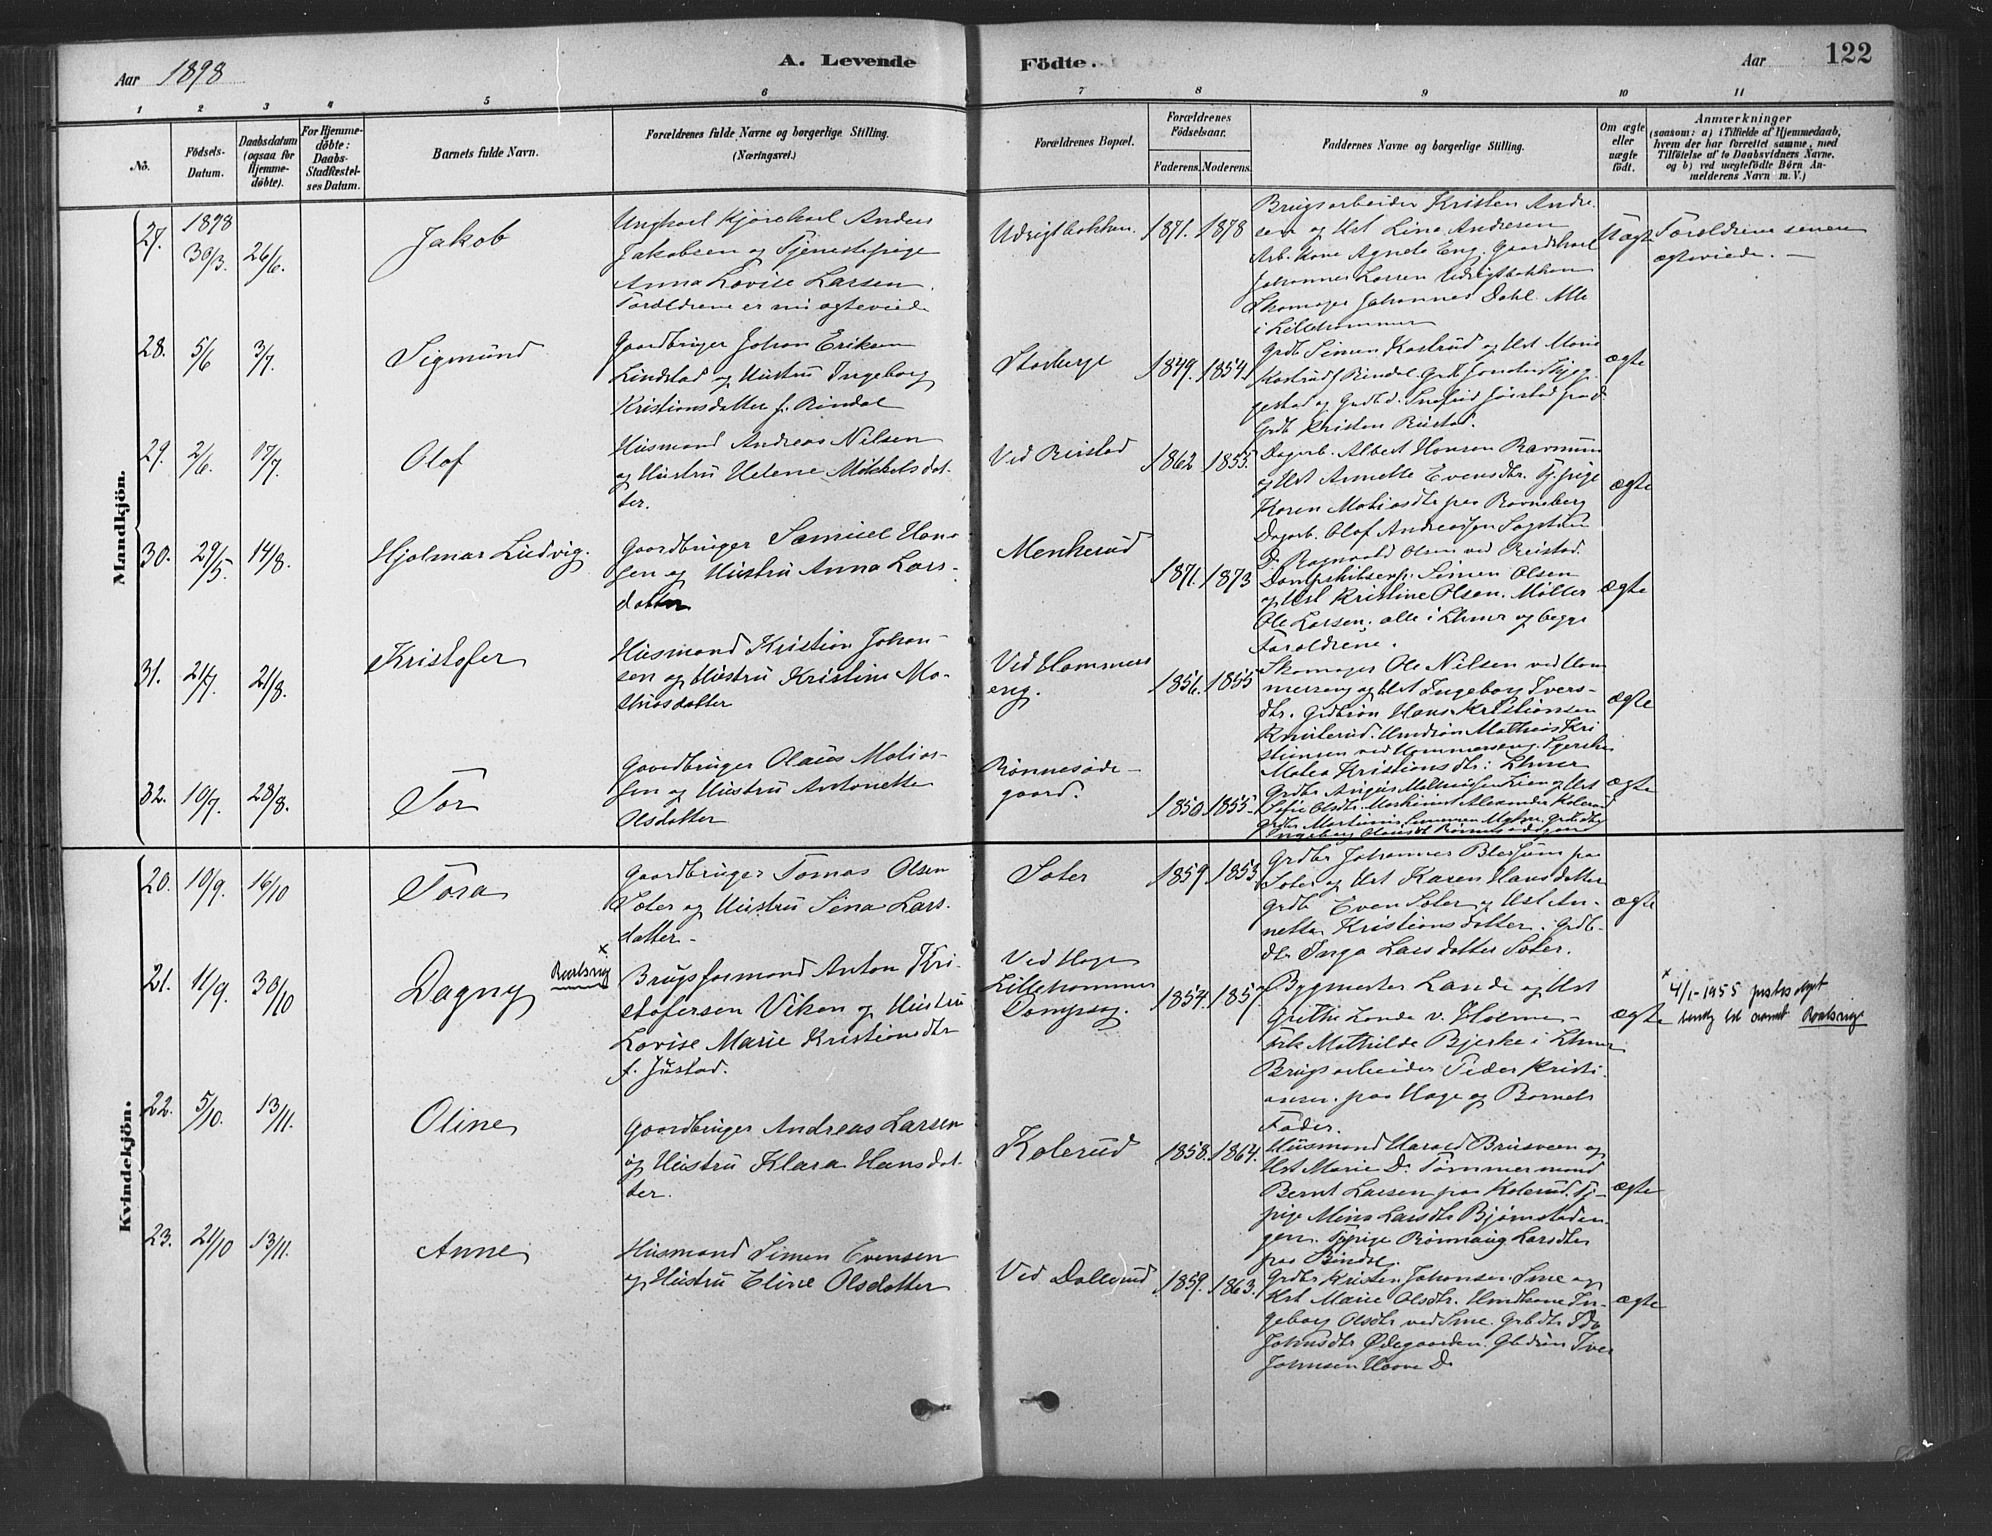 Aar 1898
A. Levende
Födte.
Aar
122
1
2
3
4
5
6
7
8
9
10
11
Nô.
Födsels-
Datum.
Daabsdatum
(ogsaa for
Hjemme-
döbte).
For Hjemme-
döbte:
Daabs-
Stadfæstel-
ses Datum.
Barnets fulde Navn.
Forældrenes fulde Navne og borgerlige Stilling.
(Næringsvei.)
Forældrenes Bopæl.
Forældrenes
Födselsaar.
Faderens.
Moderens.
Faddernes Navne og borgerlige Stilling.
Om ægte
eller
uægte
födt.
Anmærkninger
(saasom: a) i Tilfælde af Hjemmedaab,
hvem der har forrettet samme, med
Tilföielse af to Daabsvidners Navne,
og b) ved uægtefödte Börn An-
melderens Navn m. V.)
Mandkjön.
27.
1898
30/3.
26/6.
Jakob
Ungkarl Kjørekarl Anders
Jakobsen og Tjenestepige
Anna Lovise Larsen.
Forældrene er nu ægteviede
1871.
1878
Brugsarbeider Kristen Andre-
sen og Hst Lina Andresen
Arb. kone Agnete Eng. Gaardskarl
Johannes Larsen
Skomager Johannes Dahl. Alle
i Lillehammer
Uægte
Forældrene senere
ægteviede. —
28.
5/6
3/7.
Sigmund
Gaardbruger Johan Eriksen
Lindstad og Hustru Ingeborg
Kristiansdatter f. Rindal
Storberge
1849.
1854.
Grdb Simen Kastrud og Hst Marie
Grdb Kristen Rustad.
ægte
29.
2/6.
17/7.
Olaf
Husmand Andreas Nilsen
og Hustru Helene Mikkelsdat-
ter.
Ved Riistad
1862
1855.
Dagarb. Albert Hansen
og Hst Annette Evensdtr. Tj. pige
Karen Matiasdtr paa
Dagarb. Olaf Andreassen
D. Ragnvald Olsen ved Riistad.
ægte
30.
29/5.
14/8.
Hjalmar Ludvig.
Gaardbruger Samuel Han-
sen og Hustru Anna Lars-
datter
Menkerud
1871.
1873
Simen Olsen
og Hst Kristine Olsen. Møller
Ole Larsen, alle i Lhmer og begge
Forældrene.
ægte
31.
21/7.
21/8.
Kristofer
Husmand Kristian Johan-
sen og Hustru Kristine Ma-
thiasdatter
Ved Hammers
eng.
1856.
1855
Skomager Ole Nilsen ved Ham
merseng og Hst Ingeborg Ivers-
dtr. Grdbrsøn Hans Kristiansen
Mathias Kri
stiansen ved Hammerseng.
Matea Kristiansdtr: Lhmer
ægte
32.
10/7.
28/8.
Tor
Gaardbruger Olaus Matias-
sen og Hustru Antonette
Olsdatter
Rønnesøde-
gaard.
1850.
1855.
ægte
Kvindekjön.
20.
10/9.
16/10
Tora
Gaardbruger Tomas Olsen
Sater og Hustru Sina Lars-
datter.
Sater
1859.
1853.
Grdbr Johannes
Sater og Hst Karen Hansdatter
Grdb Even Sater og Hst An-
netta Kristiansdatter. Grdb-
dtr Inga Larsdatter Sater.
ægte
21.
11/9.
30/10
Dagny
x
Brugsformand Anton Kri-
stofersen Viken og Hustru
Lovise Marie Kristiansdtr
f. Justad.
Ved Hage
Lillehammer
Dampsag.
1854.
1857.
Bygmester Lande og Hst
Grethe Lande v. Holme-
frk Mathilde Bjerke i Lhmer
Brugsarbeider Peder Kristi-
ansen paa Hage og Barnets
Fader.
ægte
x
4/1-1955
22.
5/10.
13/11.
Oline
Gaardbruger Andreas Larsen
og Hustru Klara Hansdat-
ter.
Kolerud
1858.
1864.
Husmand Harald Brusveen og
Hst Marie D. Tømmermand
Bernt Larsen paa Kolerud. Tj-
pige Mina Larsdtr
gen. Tj.pige Rønnaug Larsdtr
paa Rindal.
ægte
23.
21/10
13/11.
Anne
Husmand Simen Evensen
og Hustru Eline Olsdatter
Ved Dallerud
1859.
1863.
Grdbr Kristen Johansen Sme og
Hst Marie Olsdtr. Hmdkone In-
geborg Olsdtr ved Sme. Grbdtr Ida
Johnsdtr Ødegaarden. Iver
Johnsen Haave D.
ægte